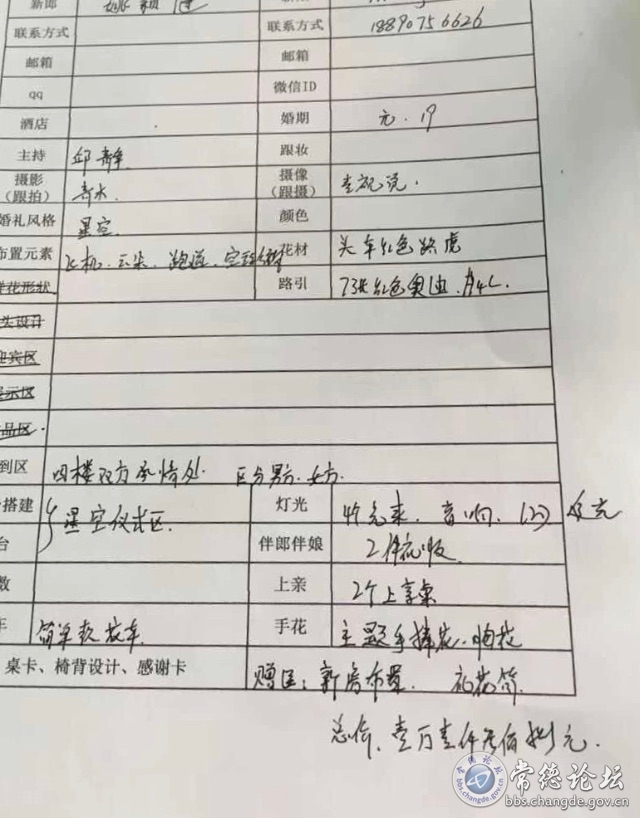 新郎
联系方式 联系方式 18890756626
邮箱 邮箱
qq 微信ID
酒店 婚期 元.19
主持 邱 跟妆
摄影 摄像
(跟拍) 青木 (跟摄)
婚礼风格 星空 颜色
布置元素 飞机、云朵、跑道、 花材 头车红色路虎
鲜花形状 路引 7台红色奥迪A4L
头设计
迎宾区
展示区
品区
到区 四楼双方承情处. 区分男方、女方.
搭建 星空仪式区. 灯光 音响.
台 伴郎伴娘
数 上亲 2个上亲桌
车 简单款花车 手花 主题手捧花、胸花
桌卡、椅背设计、感谢卡 赠送:新房布置 礼花筒
总价、壹万壹仟 佰 元.
常德论坛
bbs.changde.gov.cn